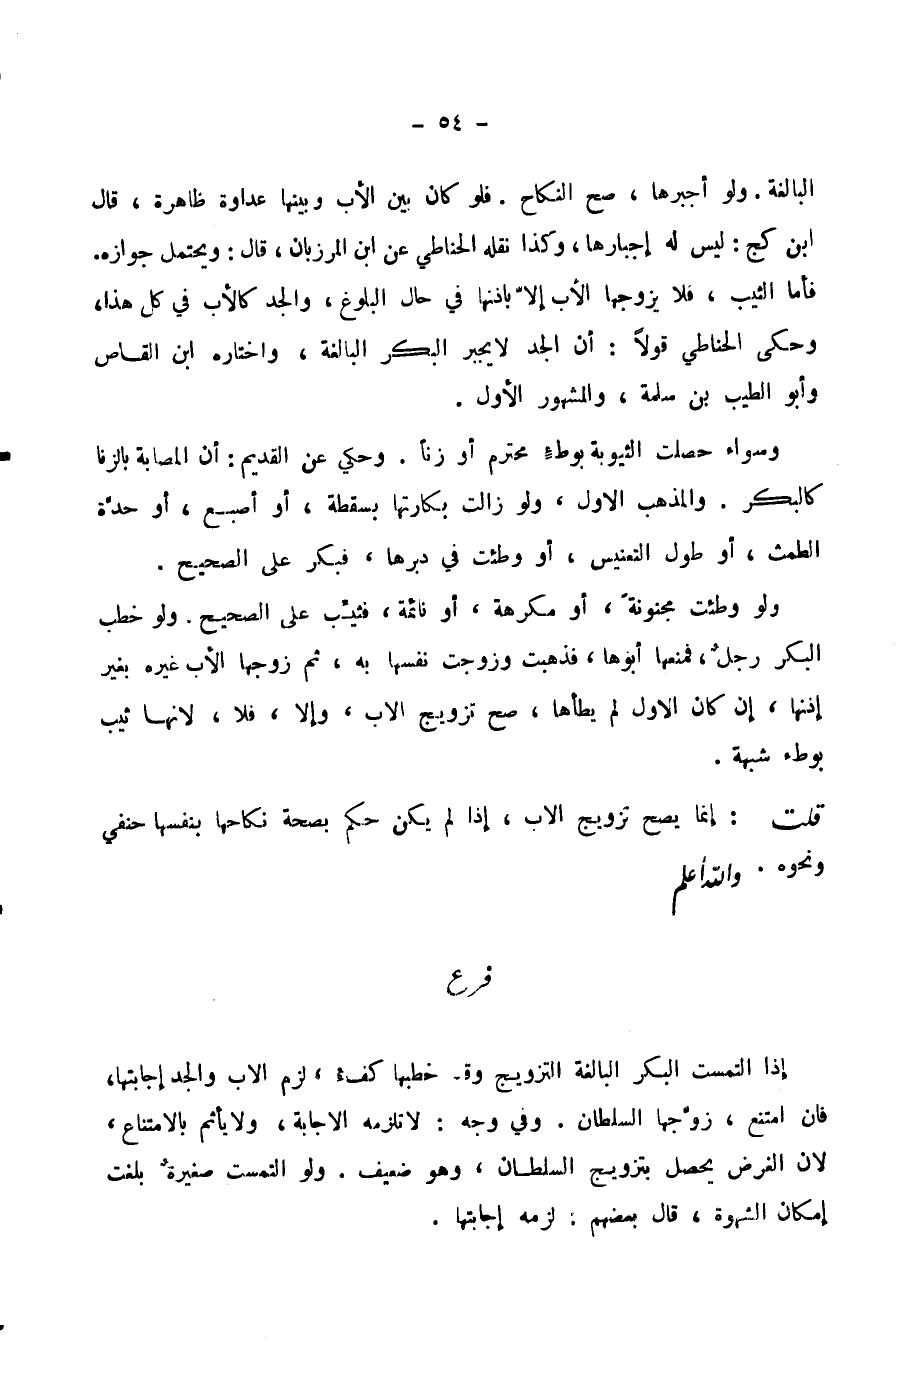 - ٥٤ -
البالغة . ولو أجبرها ، صح النكاح . فلو كان بين الأب وبينها عداوة ظاهرة ، قال
ابن كج : ليس له إجبارها ، وكذا نقله الحناطي عن ابن المرزبان ، قال : ويحتمل جوازه .
فأما الثيب ، فلا يزوجها الأب إلاّ باذنها في حال البلوغ ، والجد كالأب في كل هذا ،
وحكى الحناطي قولاً : أن الجد لايجبر البكر البالغة ، واختاره ابن القاص
وأبو الطيب بن سلمة ، والمشهور الأول .
وسواء حصلت الثيوبة بوطءٍ محترم أو زناً . وحكي عن القديم : أن المصابة بالزنا
كالبكر . والمذهب الاول ، ولو زالت بكارتها بسقطة ، أو أصبع ، أو حدّة
الطمث ، أو طول التعنيس ، أو وطئت في دبرها ، فبكر على الصحيح .
ولو وطئت مجنونةً ، أو مكرهة ، أو نائمة ، فثيّب على الصحيح . ولو خطب
البكر رجلٌ ، فمنعها أبوها ، فذهبت وزوجت نفسها به ، ثم زوجها الأب غيره بغير
إذنها ، إن كان الاول لم يطأها ، صح تزويج الاب ، وإلا ، فلا ، لانها ثيب
بوطء شبهة .
قلت : إنما يصح تزويج الاب ، إذا لم يكن حكم بصحة نكاحها بنفسها حنفي
ونحوه . والله أعلم
فرع
إذا التمست البكر البالغة التزويج وقد خطبها كفء ، لزم الاب والجد إجابتها ،
فان امتنع ، زوّجها السلطان . وفي وجه : لاتلزمه الاجابة ، ولايأثم بالامتناع ،
لان الغرض يحصل بتزويج السلطان ، وهو ضعيف . ولو التمست صغيرةٌ بلغت
إمكان الشهوة ، قال بعضهم : لزمه إجابتها .